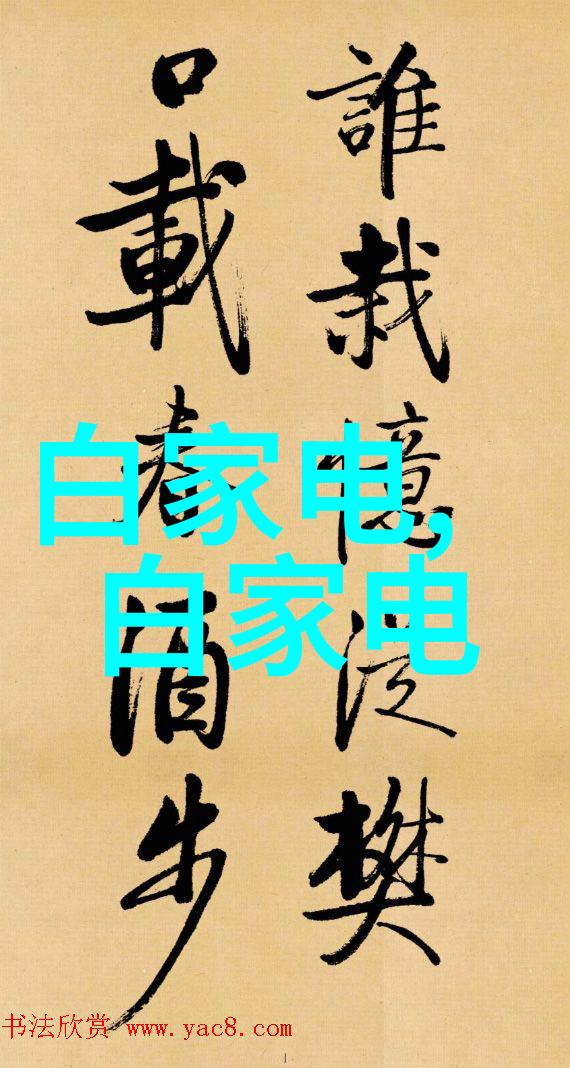 誰栽憶泛樊
口載春酒步
白家电,
白家电
书法欣赏 www.yac8.com